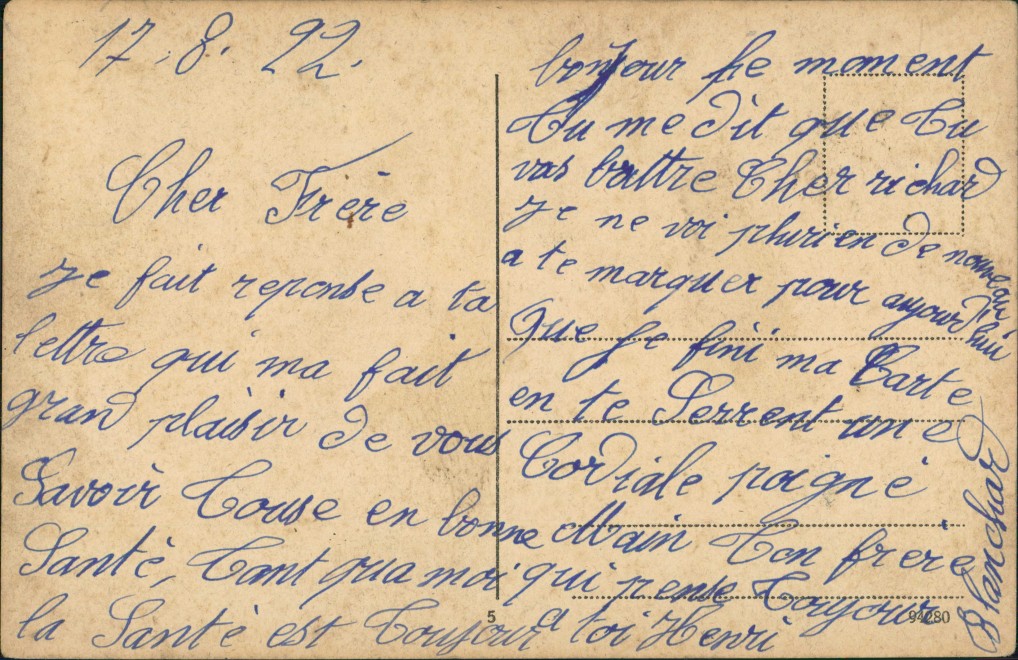 17.8.22.
Cher Frère
Je fait reponse a ta
lettre qui ma fait
grand plaisir de vous
Savoir Touse en bonne
Santé, Tant qua moi
la Santé est Toujour
bonjour pie moment
Tu me dit que Tu
vas battre Cher richard
Je ne voi plurien de nouveau
a te marquer pour aujourd'hui
Que Je fini ma Carte
en te Serrent une
Cordiale poigné
Main Ton frère
qui pense Toujour
a toi Henri
Blanchard
5
94280